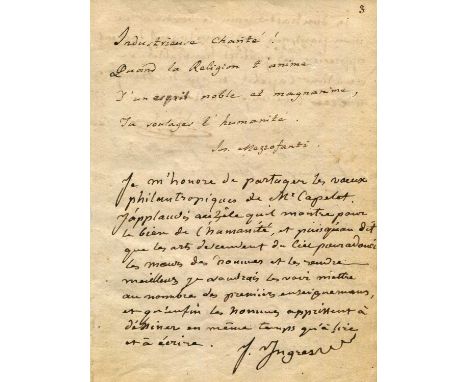 3
Industrieuse charité !
Quand la Religion t'anime
D'un esprit noble et magnanime,
Tu soulages l'humanité.
Jos. Mezzofanti.
Je m'honore de partager les vœux
philantropiques de Mr Capelet.
J'applaudis au zèle qu'il montre pour
le bien de l'humanité, et puisqu'on dit
que les arts descendent du Ciel pour adoucir
les mœurs des hommes et les rendre
meilleurs je voudrais les voir mettre
au nombre des premiers enseignemens,
et qu'enfin les hommes apprissent à
dessiner en même temps qu'à lire
et à écrire.
J. Ingres